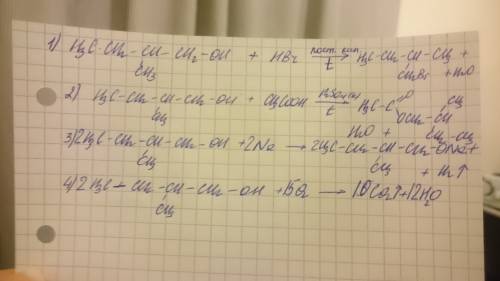 1) H₃C-CH₂-CH-CH₂-OH + HBr → H₃C-CH₂-CH-CH₃ +
CH₃ t CH₂Br + H₂O
2) H₃C-CH₂-CH-CH₂-OH + CH₃COOH H₂SO₄ → H₃C-C O CH₃
CH₃ t OCH₂-CH
H₂O + CH₂-CH₃
3) 2H₃C-CH₂-CH-CH₂-OH + 2Na → 2H₃C-CH₂-CH-CH₂-ONa +
CH₃ CH₃ + H₂↑
4) 2H₃C-CH₂-CH-CH₂-OH + 15O₂ → 10CO₂↑ + 12H₂O
CH₃